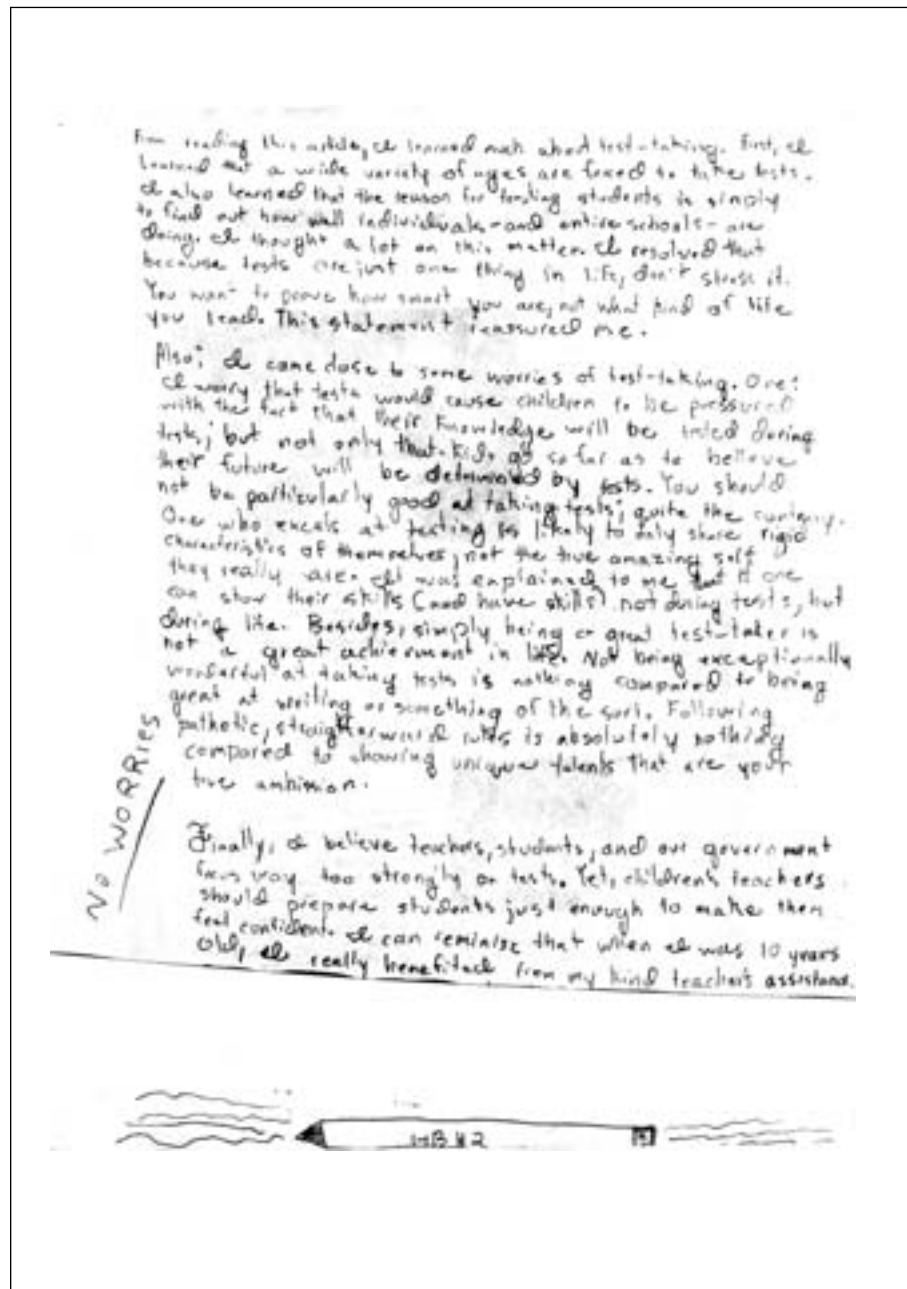 From reading this article, I learned much about test-taking. First, I
learned that a wide variety of ages are forced to take tests.
I also learned that the reason for testing students is simply
to find out how well individuals - and entire schools - are
doing. I thought a lot on this matter. I resolved that
because tests are just one thing in life, don't stress it.
You want to prove how smart you are, not what kind of life
you lead. This statement reassured me.
Also, I came close to some worries of test-taking. One:
I worry that tests would cause children to be pressured
with the fact that their knowledge will be tested during
tests; but not only that - kids go so far as to believe
their future will be determined by tests. You should
not be particularly good at taking tests; quite the contrary.
One who excels at testing is likely to only share rigid
characteristics of themselves, not the true amazing self
they really are. It was explained to me that if one
can show their skills (and have skills) not during tests, but
during life. Besides, simply being a great test-taker is
not a great achievment in life. Not being exceptionally
wonderful at taking tests is nothing compared to being
great at writing or something of the sort. Following
pathetic, straightforward rules is absolutely nothing
compared to showing unique talents that are your
true ambission.
NO WORRIES
Finally, I believe teachers, students, and our government
focus way too strongly on tests. Yet, children's teachers
should prepare students just enough to make them
feel confident. I can reminise that when I was 10 years
old, I really benefited from my kind teacher's assistance.
HB #2